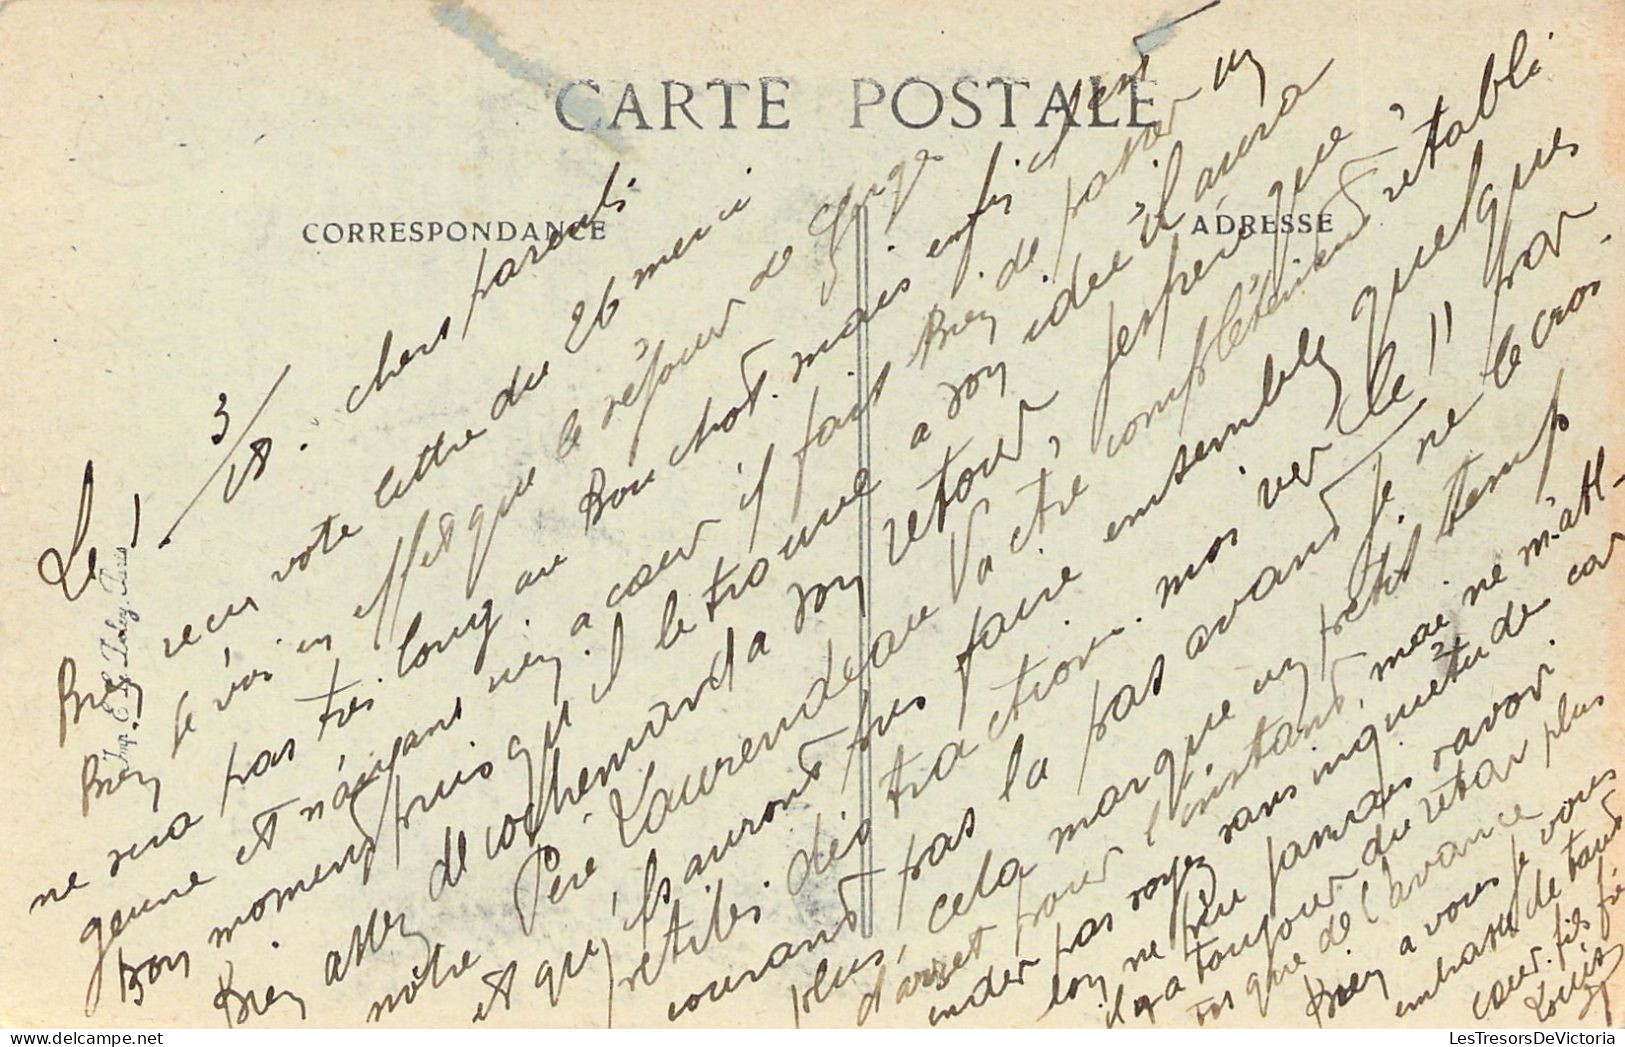 CARTE POSTALE
CORRESPONDANCE
ADRESSE
Le 1/3 18. chers parents
Bien recu votre lettre du 26 merci
Bien Je voi en effet que le séjour de
ne sera pas très long au Bouchot. mais enfin c'est
geune et n'ayant rien a coeur il fait Bien de passer un
Bon moment puisqu'il le trouve a son idée il aura
Bien assez de cochemard a son retour, Jespère que
nôtre Père Laurendeau Vactre complètement rétabli
et qu'ils auront pus faire ensemble quelques
petites dis traction. moi ver le !! par
courant pas la pas avant Je ne le crois
plus, cela marque un petit temp
d'arret pour l'instant, mae ne m'att-
ender pas soyez sans inquiétude car
lon ne peu jamais savoir.
il y a toujour du retar plus
que de l'avance
Bien a vous Je vous
embrasse de tout
coeur. fils
Louis
Imp. E. Le Deley, Paris
LesTresorsDeVictoria